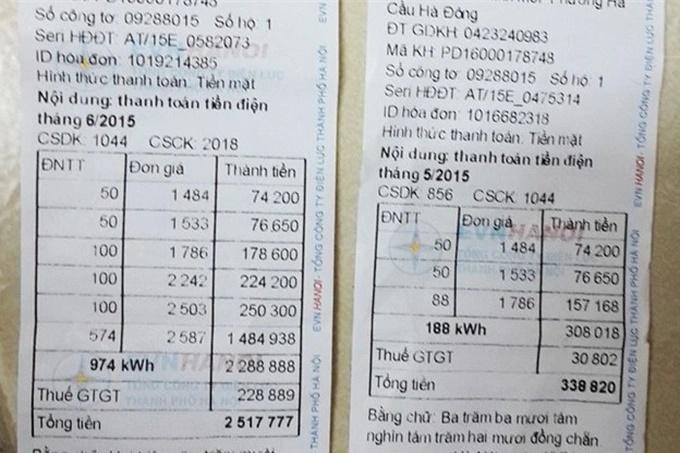 Số công tơ: 09288015 Số hộ: 1
Seri HĐĐT: AT/15E_0582073
ID hóa đơn: 1019214385
Hình thức thanh toán: Tiền mặt
Nội dung: thanh toán tiền điện
tháng 6/2015
CSDK: 1044 CSCK: 2018
ĐNTT Đơn giá Thành tiền
50 1 484 74 200
50 1 533 76 650
100 1 786 178 600
100 2 242 224 200
100 2 503 250 300
574 2 587 1 484 938
974 kWh 2 288 888
Thuế GTGT 228 889
Tổng tiền 2 517 777
EVN HANOI - TỔNG CÔNG TY ĐIỆN LỰC THÀNH PHỐ HÀ NỘI
EVNHANOI
TỔNG CÔNG TY ĐIỆN LỰC
THÀNH PHỐ HÀ NỘI
Cầu Hà Đông
ĐT GDKH: 0423240983
Mã KH: PD16000178748
Số công tơ: 09288015 Số hộ: 1
Seri HĐĐT: AT/15E_0475314
ID hóa đơn: 1016682318
Hình thức thanh toán: Tiền mặt
Nội dung: thanh toán tiền điện
tháng 5/2015
CSDK: 856 CSCK: 1044
ĐNTT Đơn giá Thành tiền
50 1 484 74 200
50 1 533 76 650
88 1 786 157 168
188 kWh 308 018
Thuế GTGT 30 802
Tổng tiền 338 820
Bằng chữ: Ba trăm ba mươi tám
nghìn tám trăm hai mươi đồng chẵn
EVN HANOI - TỔNG CÔNG TY ĐIỆN LỰC THÀNH PHỐ HÀ NỘI